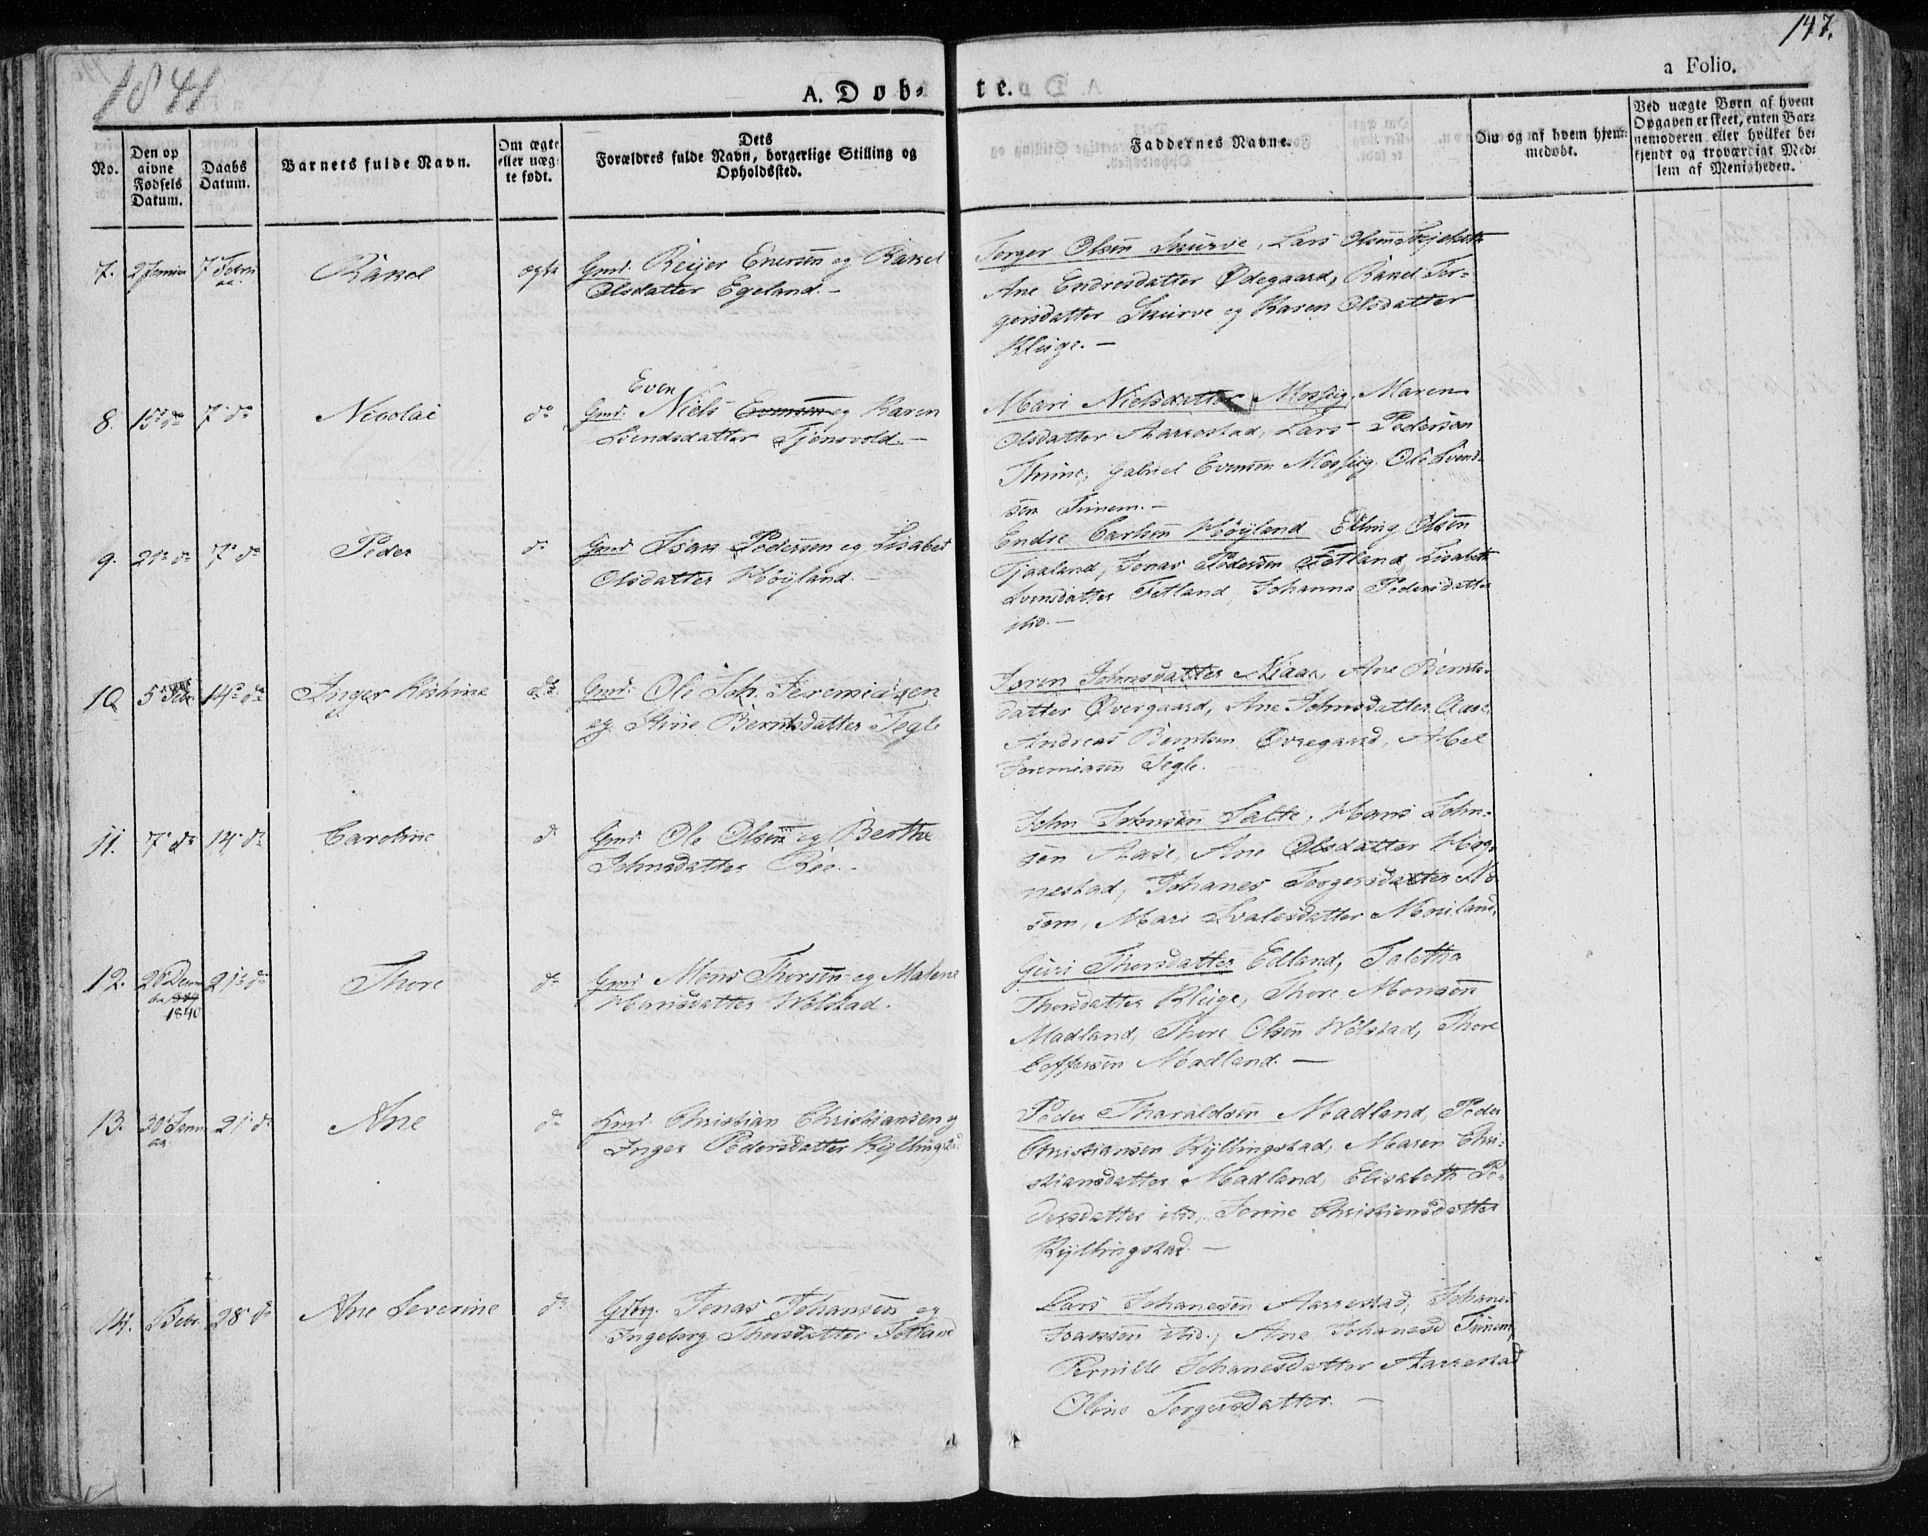 1841
147.
A. Døb-
te.
a Folio.
No.
Den op
givne
Fødsels
Datum.
Daabs
Datum.
Barnets fulde Navn.
Om ægte
eller uæg-
te født.
Dets
Forældres fulde Navn, borgerlige Stilling og
Opholdssted.
Faddernes Navne.
Om og af hvem hjem-
medøbt.
Ved uægte Børn af hvem
Opgaven er skeet, enten Bar-
nemoderen eller hvilket be-
kjendt og troværdigt Med-
lem af Menigheden.
7.
7 Febru
ar.
Rakel
ægte
Gmd. Reijer Enersen og Rakel
Olsdatter Egeland.-
Torger Olsen Skurve, Lars Olsen
Ane Endresdatter Ødegaard, Rakel Tor-
gersdatter Skurve og Karen Olsdatter
Kluge.-
8.
15de do
7 do
Nicolai
do
Even
Gmd. Niels Evensen og Karen
Svendsdatter Tjensvold.-
Mari Nielsdatter Mossig, Maren
Olsdatter Aarrestad, Lars Pedersen
Thime, Gabriel Evensen Mossig, Ole Svend-
sen Tunem.-
9.
21de do
7 do
Peder
do
Gmd. Isak Pedersen og Lisabet
Olsdatter Høÿland.-
Endre Carlsen Høÿland Elling Olsen
Tjaaland, Jonas Pedersen Fotland, Lisabeth
Svensdatter Fotland, Johanna Pedersdatter
ibid.-
10.
5 Febr
14de do
Inger Kistine
do
Gmd. Ole Joh. Jeremiasen
og Stine Berntsdatter Tegle
Søren Johnsdatter Niaae, Ane Bernts-
datter Øvergaard, Ane Johnsdatter Aase,
Andreas Berntsen Øvregaard, Abel
Jeremiasen Tegle.
11.
7 do
14 do
Caroline
do
Gmd. Ole Olsen og Berthe
Johnsdatter Ree.-
John Johnsen Salte, Hans John-
sen Aase, Ane Olsdatter Høg-
nestad, Johanes Torgersdatter
som, Mari Svalesdatter
12.
26 Decem
ber 1839
1840
21de do
Thore
do
Gmd. Mons Thorsen og Malene
Hansdatter Wølstad.
Guri Thorsdatter Edland, Taletha
Thorsdatter Kluge, Thore Monsen
Madland, Thore Olsen Wølstad, Thore
Coffersen Madland.-
13.
30 Janu
ar
21 do
Ane
do
Gmd. Christian Christiansen og
Inger Pedersdatter Kÿllingstad
Peder Tharaldsen Madland, Peder
Christiansen Kÿllingstad, Maren Chri-
stiansdatter Madland, Elisabeth Pe-
dersdatter ibid, Serine Christiensdatter
Kÿllingstad.-
14.
Febr.
28 do
Ane Severine
do
Gdbrg. Jonas Johansen og
Ingeborg Thorsdatter Fotland
Lars Johanesen Aarrestad, Johanes
Isaksen ibid., Ane Johanesd Tunem,
Pernille Johanesdatter Aarrestad
Oline Torgersdatter.-